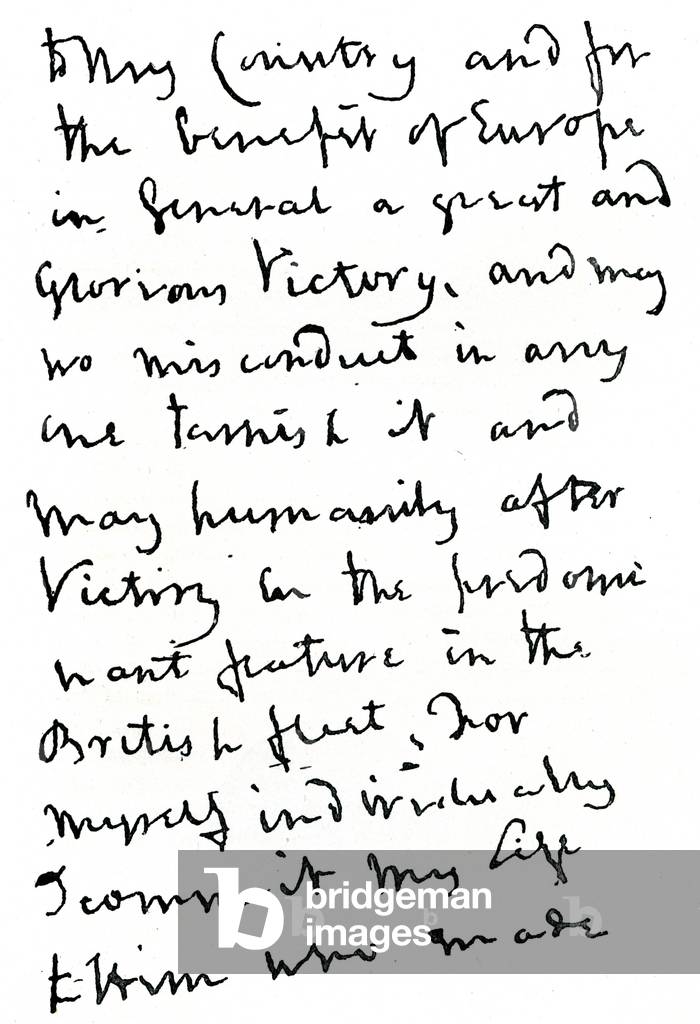 to my Country and for
the benefit of Europe
in General a great and
Glorious Victory, and may
no misconduct in any
one tarnish it and
may humanity after
Victory be the predomi
nant feature in the
British fleet, For
myself individually
I commit my Life
to Him who made
bridgeman
images